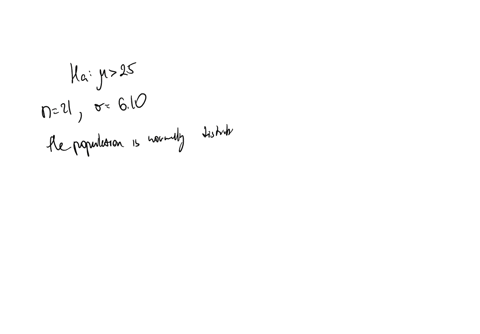 Ha: μ > 25
n = 21, σ = 6.10
the population is normally distrib